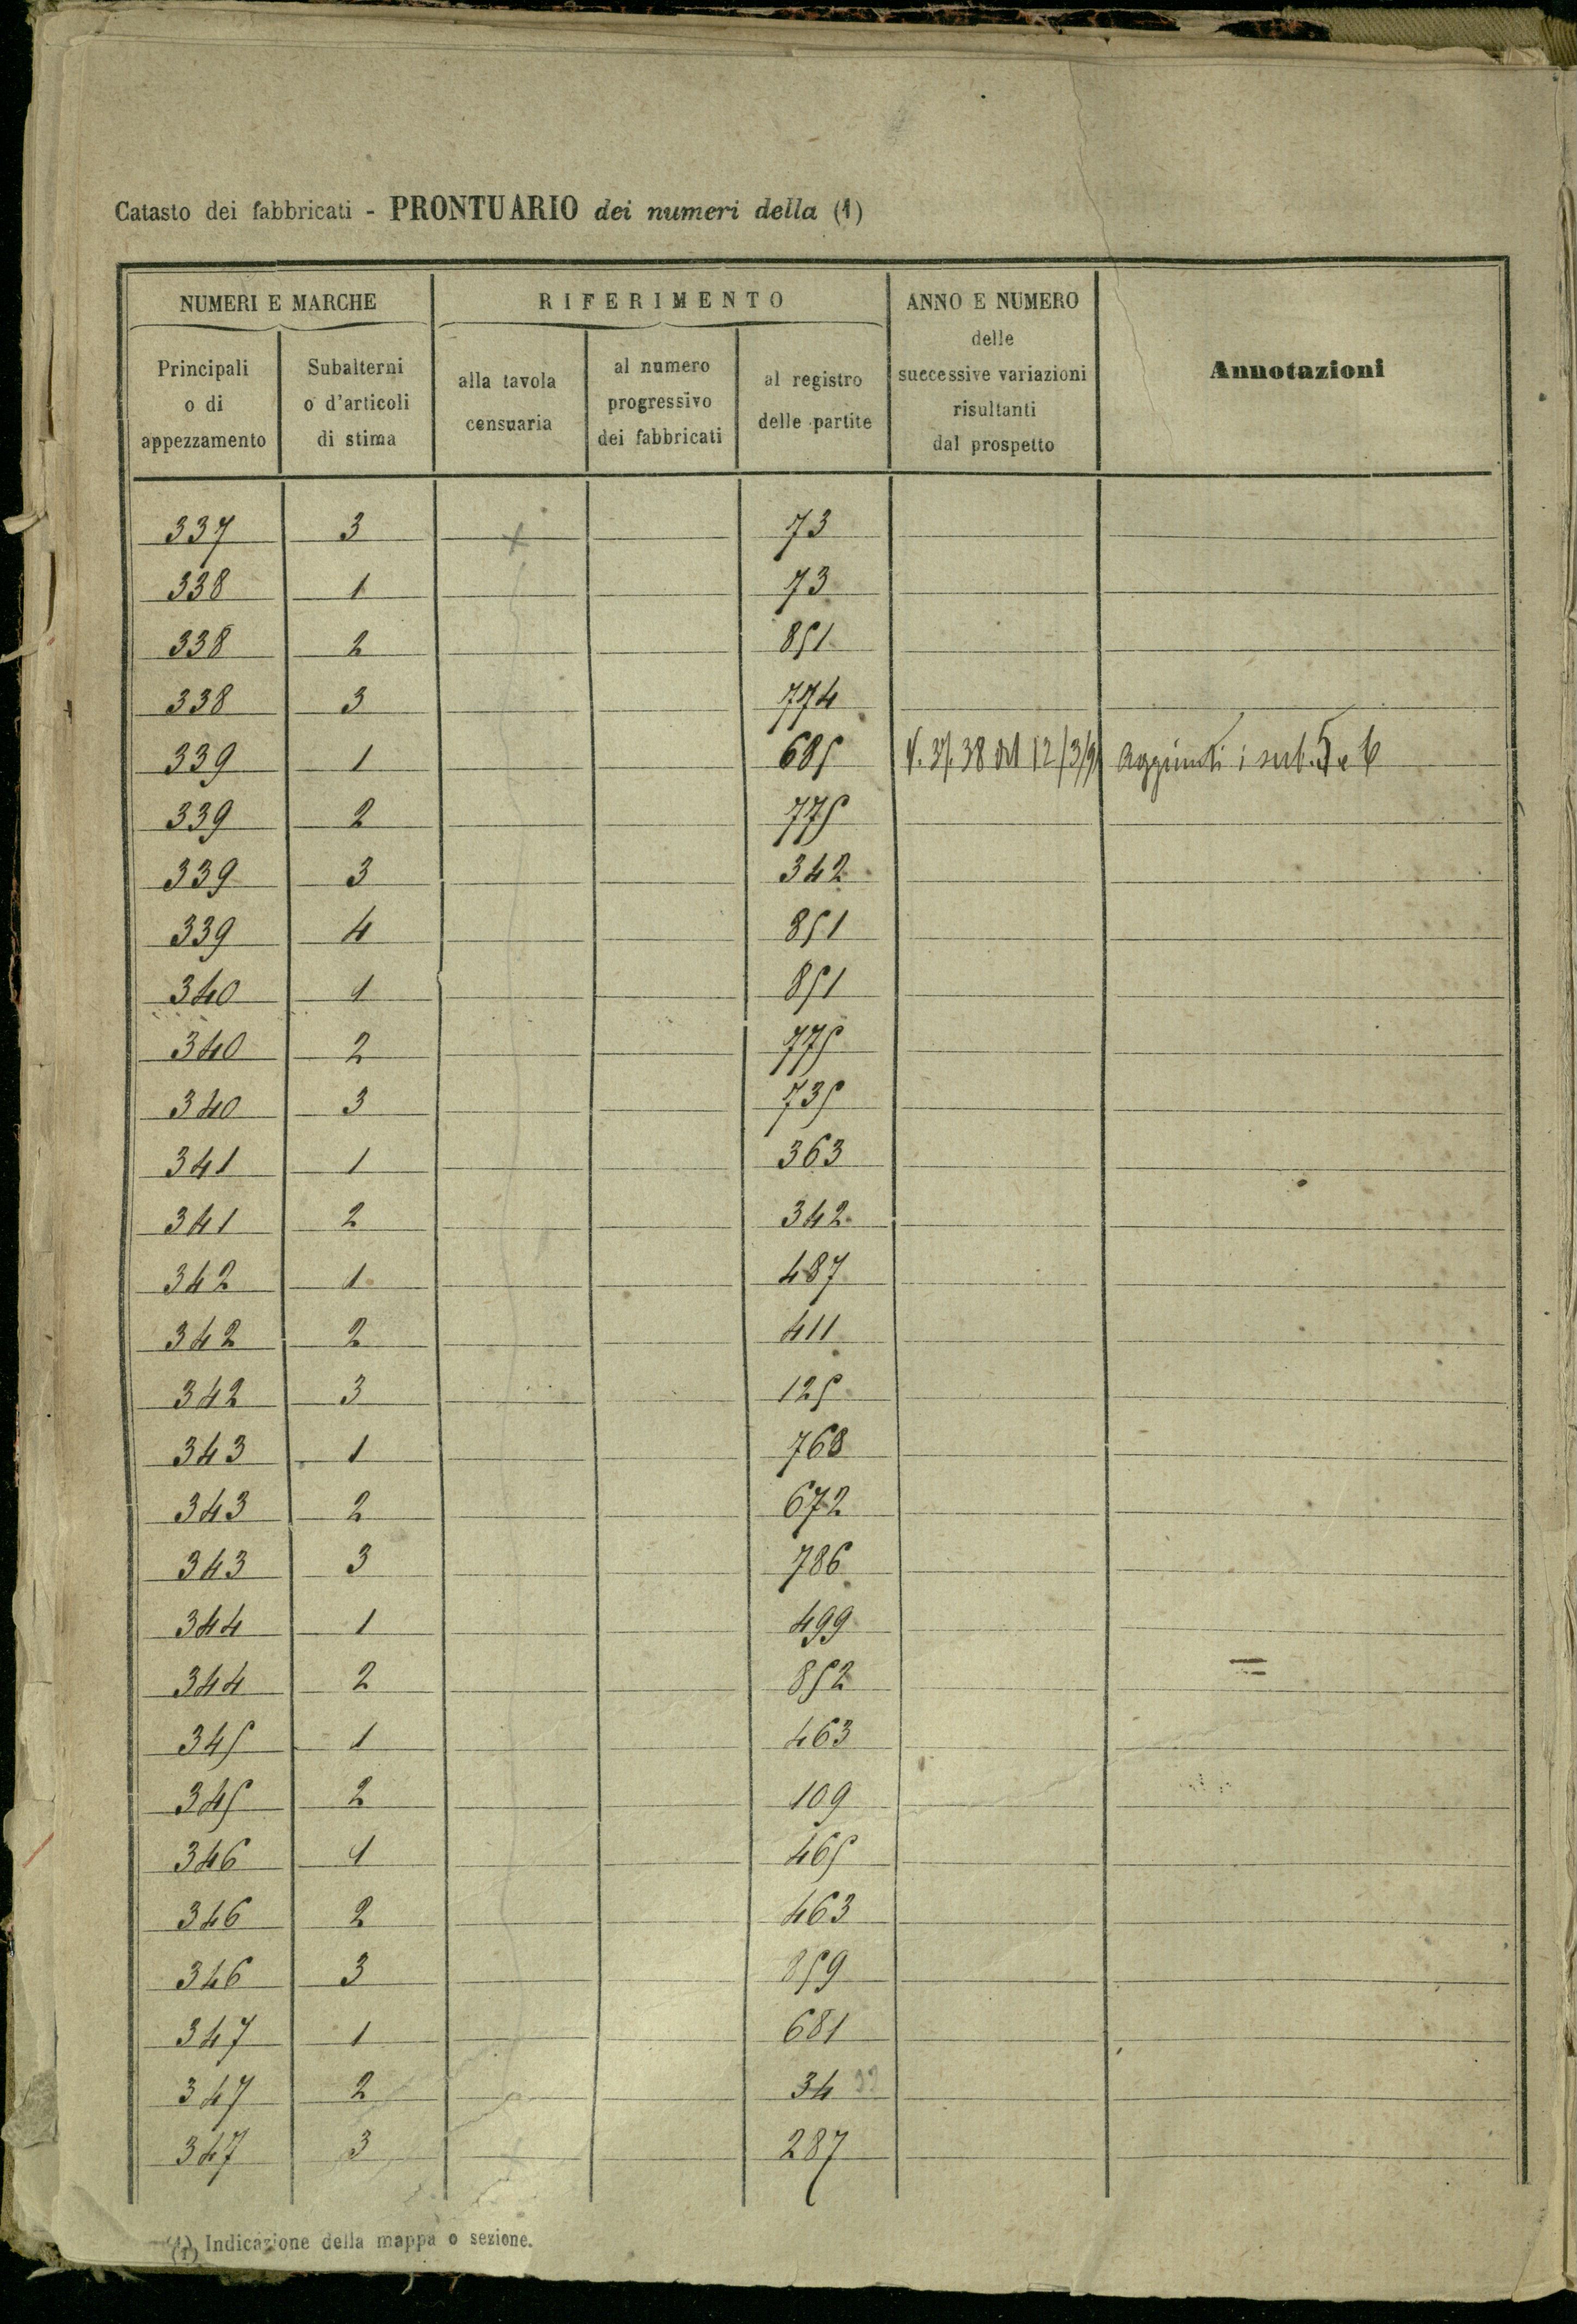 Catasto dei fabbricati - PRONTUARIO dei numeri della (1)
NUMERI E MARCHE
RIFERIMENTO
ANNO E NUMERO
delle
successive variazioni
risultanti
dal prospetto
Annotazioni
Principali
o di
appezzamento
Subalterni
o d'articoli
di stima
alla tavola
censuaria
al numero
progressivo
dei fabbricati
al registro
delle partite
337 3 73
338 1 73
338 2 851
338 3 774
339 1 685 38 del 12/3/9 aggiunti i sub. 5 e 6
339 2 775
339 3 342
339 4 851
340 1 851
340 2 775
340 3 735
341 1 363
341 2 342
342 1 487
342 2 411
342 3 125
343 1 768
343 2 672
343 3 786
344 1 499
344 2 852
345 1 463
345 2 109
346 1 465
346 2 463
346 3 859
347 1 681
347 2 34
347 3 287
(1) Indicazione della mappa o sezione.